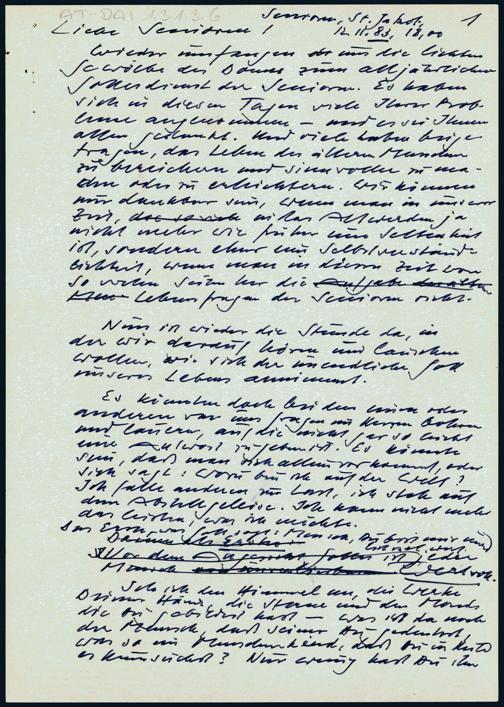 AT-DAI 1.3.1.3.6
Senioren, St. Jakob,
1
Liebe Senioren!
12.11.83, 15.00
Wieder umfangen uns die lichten
Gewölbe des Doms zum alljährlichen
Gottesdienst der Senioren. Es haben
sich in diesen Tagen viele Ihrer Prob-
leme angenommen – und es sei Ihnen
allen gedankt. Und viele haben beige-
tragen, das Leben des älteren Menschen
zu bereichern und sinnvoller zu ma-
chen oder zu erleichtern. Wir können
nur dankbar sein, wenn man in unserer
Zeit, in das Altwerden ja
nicht mehr wie früher eine Seltenheit
ist, sondern eher eine Selbstverständ-
lichkeit, wenn man in dieser Zeit von
so vielen Seiten her die Aufgabe der alten
Lebensfragen der Senioren sieht.
Nun ist wieder die Stunde da, in
der wir darauf hören und lauschen
wollen, wie sich der unendliche Gott
unseres Lebens annimmt.
Es könnten doch bei dem einen oder
anderen von uns Fragen im Herzen bohren
und lauern, auf die nicht gar so leicht
eine Antwort zu geben ist. Es könnte
sein, daß man sich allein vorkommt, oder
sich sagt: Wozu bin ich auf der Welt?
Ich falle anderen zur Last, ich steh auf
dem Abstellgeleise. Ich kann nicht mehr
das leisten, was ich möchte.
Das Erste: Mensch, Du bist mir
Vor dem Angesicht Gottes ist jeder
Mensch wertvoll.
Seh ich den Himmel an, die Werke
Deiner Hände, die Sterne und den Mond,
die Du gebildet hast – was ist da noch
der Mensch, daß seiner Du gedenkst,
was so ein Menschenkind, daß Du in Huld
es heimsuchst? Nur wenig hast Du ihn